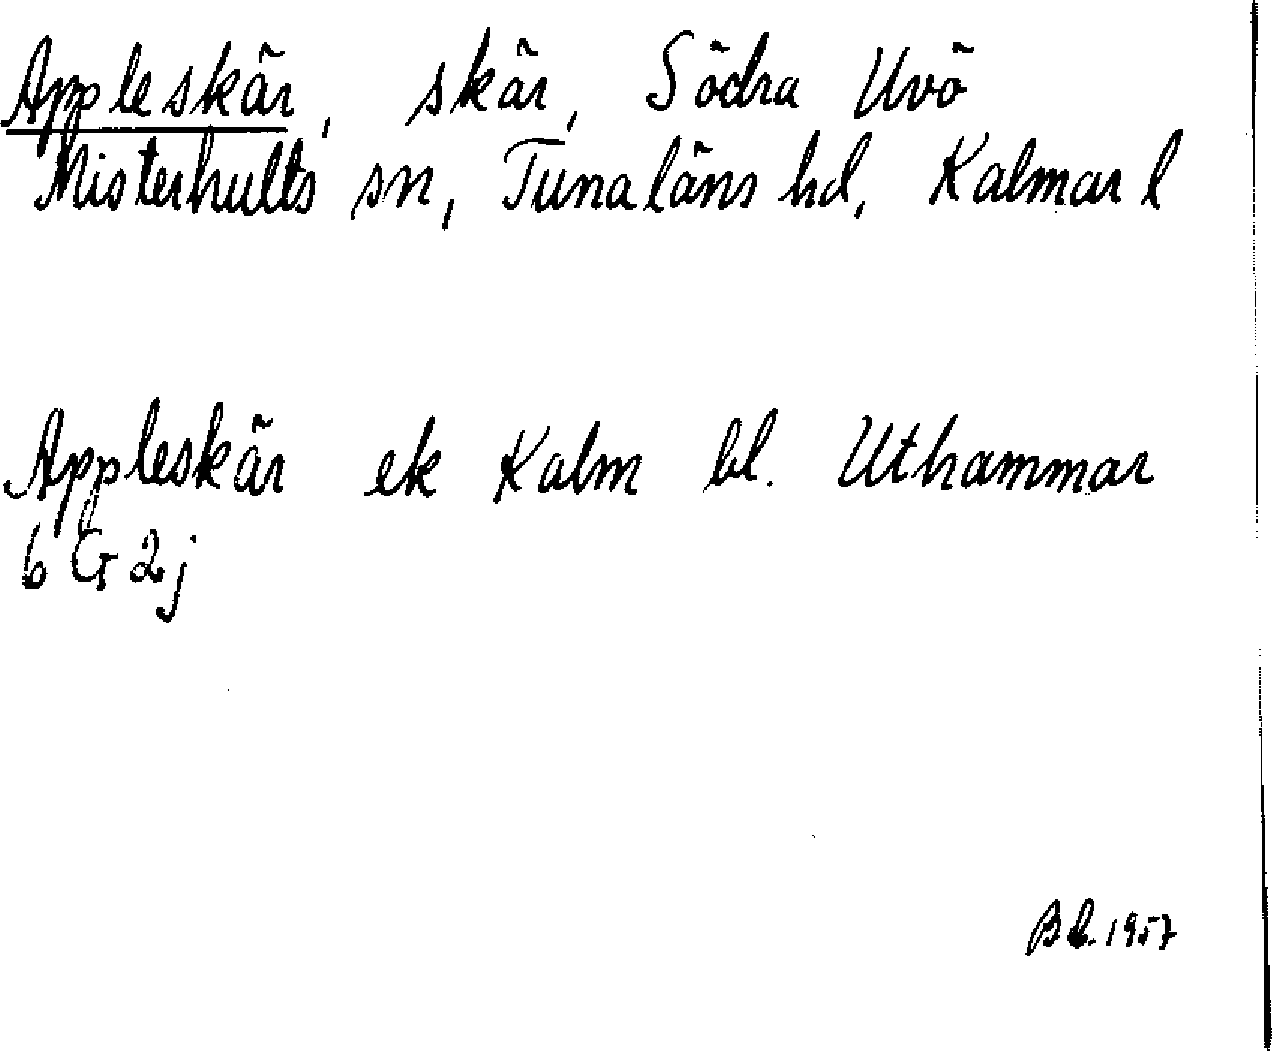 Appleskär, skär, Södra Uvö
Misterhults sn, Tunaläns hd, Kalmar l
Appleskär ek Kalm bl. Uthammar
6 G 2j
1957